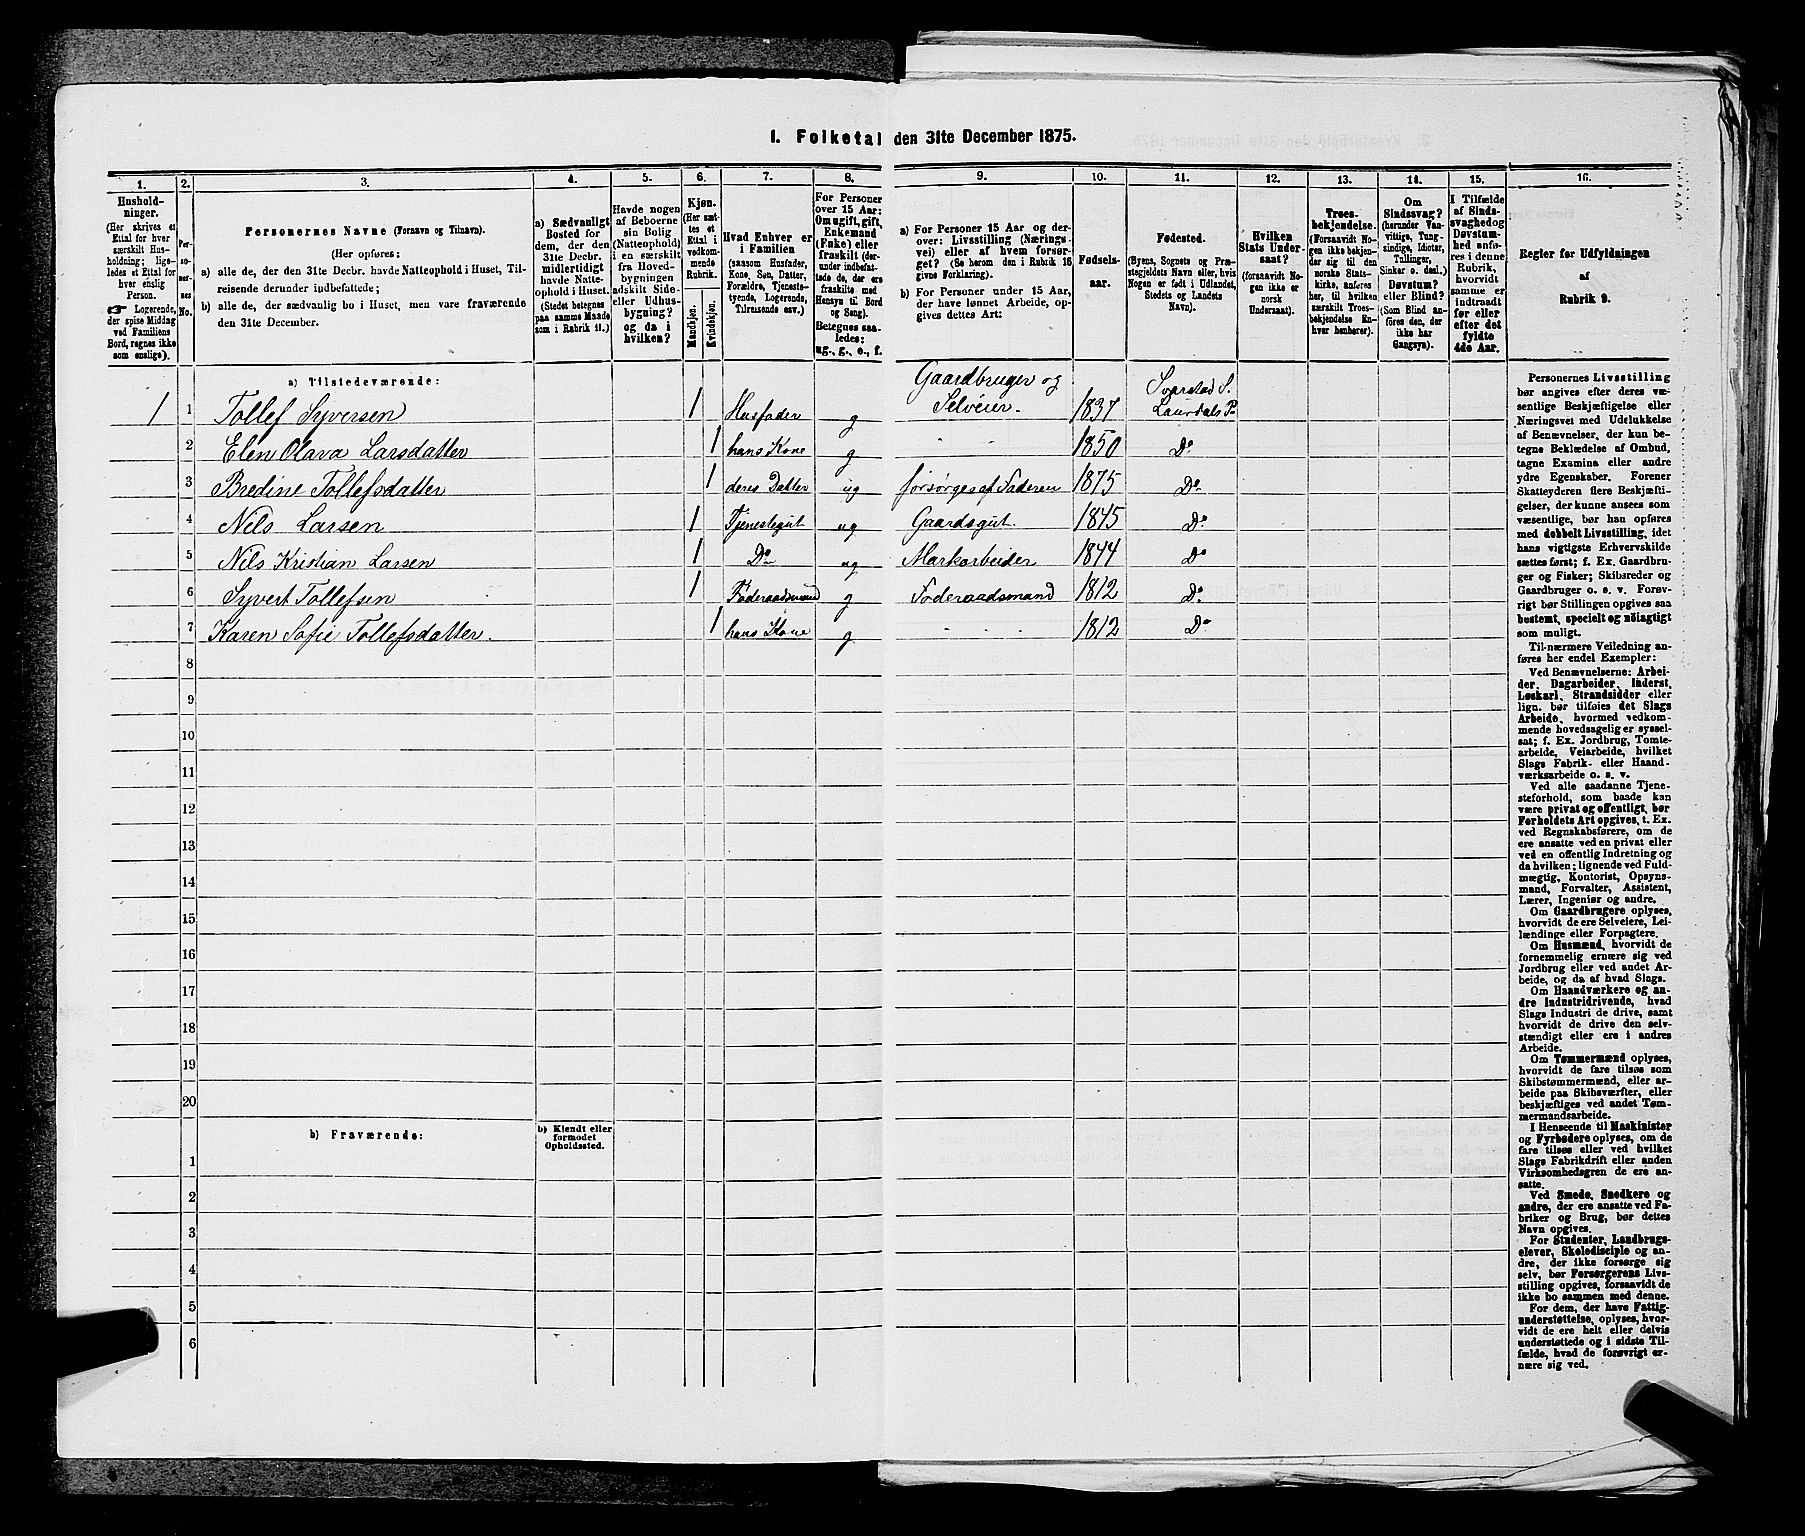 1. Folketal den 31te December 1875.
1. 2. 3. 4. 5. 6. 7. 8. 9. 10. 11. 12. 13. 14. 15. 16.
Husholdninger.
(Her skrives et
Ettal for hver
særskilt Husholdning; ligeledes
et Ettal for
hver enslig
Person.
☛ Logerende,
der spise Middag
ved Familiens
Bord, regnes ikke
som enslige).
Personernes No.
Personernes Navne (Fornavn og Tilnavn).
(Her opføres:
a) alle de, der den 31te Decbr. havde Natteophold i Huset, Tilreisende derunder indbefattede;
b) alle de, der sædvanlig bo i Huset, men vare fraværende
den 31te December.
a) Sædvanligt
Bosted for
dem, der den
31te Decbr.
midlertidigt
havde Natteophold i Huset.
(Stedet betegnes
paa samme Maade
som i Rubrik 11.)
Havde nogen
af Beboerne
sin Bolig
(Natteophold)
i en særskilt
fra Hovedbygningen
adskilt Side-
eller Udhusbygning?
og da i
hvilken?
Kjøn.
(Her sættes et
Ettal i
vedkommende
Rubrik.
Mandkjøn.
Kvindekjøn.
Hvad Enhver er
i Familien
(saasom Husfader,
Kone, Søn, Datter,
Forældre, Tjenestetyende, Logerende,
Tilreisende osv.)
For Personer
over 15 Aar:
Om ugift, gift,
Enkemand
(Enke) eller
fraskilt (derunder indbefattede de, der ere
fraskilte med
Hensyn til Bord
og Seng).
Betegnes saaledes:
ug., g., e., f.
a) For Personer 15 Aar og derover: Livsstilling (Næringsvei) eller af hvem forsørget? (Se herom den i Rubrik 16
givne Forklaring).
b) For Personer under 15 Aar,
der have lønnet Arbeide, opgives dettes Art:
Fødselsaar.
Fødested.
(Byens, Sognets og Præstegjeldets Navn eller, hvis
Nogen er født i Udlandet,
Stedets og Landets
Navn).
Hvilken
Stats Undersaat?
(forsaavidt Nogen ikke er
norsk
Undersaat).
Troesbekjendelse.
(Forsaavidt Nogen ikke bekjender sig til den
norske Statskirke, anføres
her, til hvilken
særskilt Troesbekjendelse Enhver henhører).
Om
Sindssvag?
(herunder Vanvittige, Tungsindige, Idioter,
Tullinger,
Sinker o. desl.)
Døvstum?
eller Blind?
(Som Blind anføres den, der
ikke har
Gangsyn).
I Tilfælde
af Sindssvaghed og
Døvstumhed anføres i denne
Rubrik,
hvorvidt
samme er
indtraadt
før eller
efter det
fyldte
4de Aar.
Regler for Udfyldningen
af
Rubrik 9.
a) Tilstedeværende:
1 1 Tollef Syversen 1 Husfader g Gaardbruger og Selveier. 1837 Svarstad S. Laurdals P.
2 Elen Olava Larsdatter 1 hans Kone g " " 1850 Do
3 Bredine Tollefsdatter 1 deres Datter ug forsørges af Faderen 1875 Do
4 Nils Larsen 1 Tjenestegut ug Gaardsgut. 1845 Do
5 Nils Kristian Larsen 1 Do ug Markarbeider 1844 Do
6 Syvert Tollefsen 1 Føderaadsmand g Føderaadsmand 1812 Do
7 Karen Sofie Tollefsdatter. 1 hans Kone g " " 1812 Do
8
9
10
11
12
13
14
15
16
17
18
19
20
b) Fraværende:
b) Kjendt eller
formodet
Opholdssted.
1
2
3
4
5
6
Personernes Livsstilling
bør angives efter deres væsentlige Beskjæftigelse eller
Næringsvei med Udelukkelse
af Benævnelser, der kun betegne Beklædelse af Ombud,
tagne Examina eller andre
ydre Egenskaber. Forener
Skatteyderen flere Beskjæftigelser, der kunne ansees som
væsentlige, bør han opføres
med dobbelt Livsstilling, idet
hans vigtigste Erhvervskilde
sættes først; f. Ex. Gaardbruger og Fisker; Skibsreder og
Gaardbruger o. s. v. Forøvrigt bør Stillingen opgives saa
bestemt, specielt og nöiagtigt
som muligt.
Til nærmere Veiledning anføres her endel Exempler:
Ved Benævnelserne: Arbeider, Dagarbeider, Inderst,
Løskarl, Strandsidder eller
lign. bør tilføies det Slags
Arbeide, hvormed vedkommende hovedsagelig er sysselsat; f. Ex. Jordbrug, Tomtearbeide, Veiarbeide, hvilket
Slags Fabrik- eller Haandværksarbeide o. s. v.
Ved alle saadanne Tjenesteforhold, som baade kan
være privat og offentligt, bør
Forholdets Art opgives, t. Ex.
ved Regnskabsførere, om de
ere ansatte ved en privat eller
ved en offentlig Indretning og
da hvilken; lignende ved Fuldmægtig, Kontorist, Opsynsmand, Forvalter, Assistent,
Lærer, Ingeniør og andre.
Om Gaardbrugere oplyses,
hvorvidt de ere Selveiere, Leilændinge eller Forpagtere.
Om Husmænd, hvorvidt de
fornemmelig ernære sig ved
Jordbrug eller ved andet Arbeide, og da af hvad Slags.
Om Haandværkere og andre Industridrivende, hvad
Slags Industri de drive, samt
hvorvidt de drive den selvstændigt eller ere i andres
Arbeide.
Om Tømmermænd oplyses,
hvorvidt de fare tilsøs som
Skibstømmermænd, eller arbeide paa Skibsværfter, eller
beskjæftiges ved andet Tømmermandsarbeide.
I Henseende til Maskinister
og Fyrbødere oplyses, om de
fare tilsøs eller ved hvilket
Slags Fabrikdrift eller anden
Virksomhedsgren de ere ansatte.
Ved Smede, Snedkere og
andre, der ere ansatte ved Fabriker og Brug, bør dettes
Navn opgives.
For Studenter, Landbrugselever, Skoledisciple og andre, der ikke forsørge sig
selv, bør Forsørgerens Livsstilling opgives, forsaavidt de
ikke bo sammen med denne.
For dem, der have Fattigunderstøttelse, oplyses, hvorvidt de ere helt eller delvis
understøttede og i sidste Tilfælde, hvad de forøvrigt ernære sig ved.